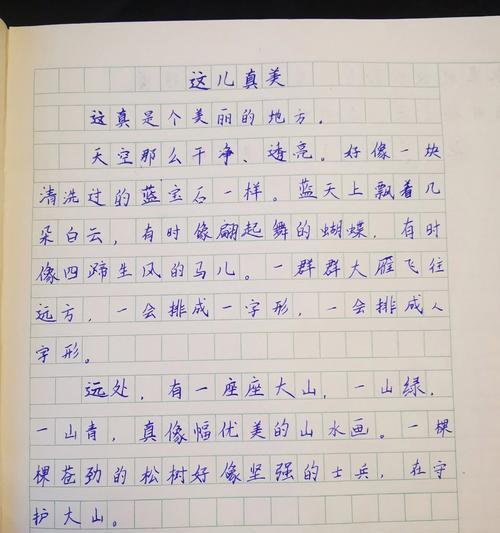 这儿真美
这真是个美丽的地方．
天空那么干净、透亮。好像一块
清洗过的蓝宝石一样。蓝天上飘着几
朵白云，有时像翩起舞的蝴蝶，有时
像四蹄生风的马儿。一群群大雁飞往
远方，一会排成一字形，一会排成人
字形。
远处，有一座座大山，一山绿，
一山青，真像幅优美的山水画。一棵
棵苍劲的松树好像坚强的士兵，在守
护大山。